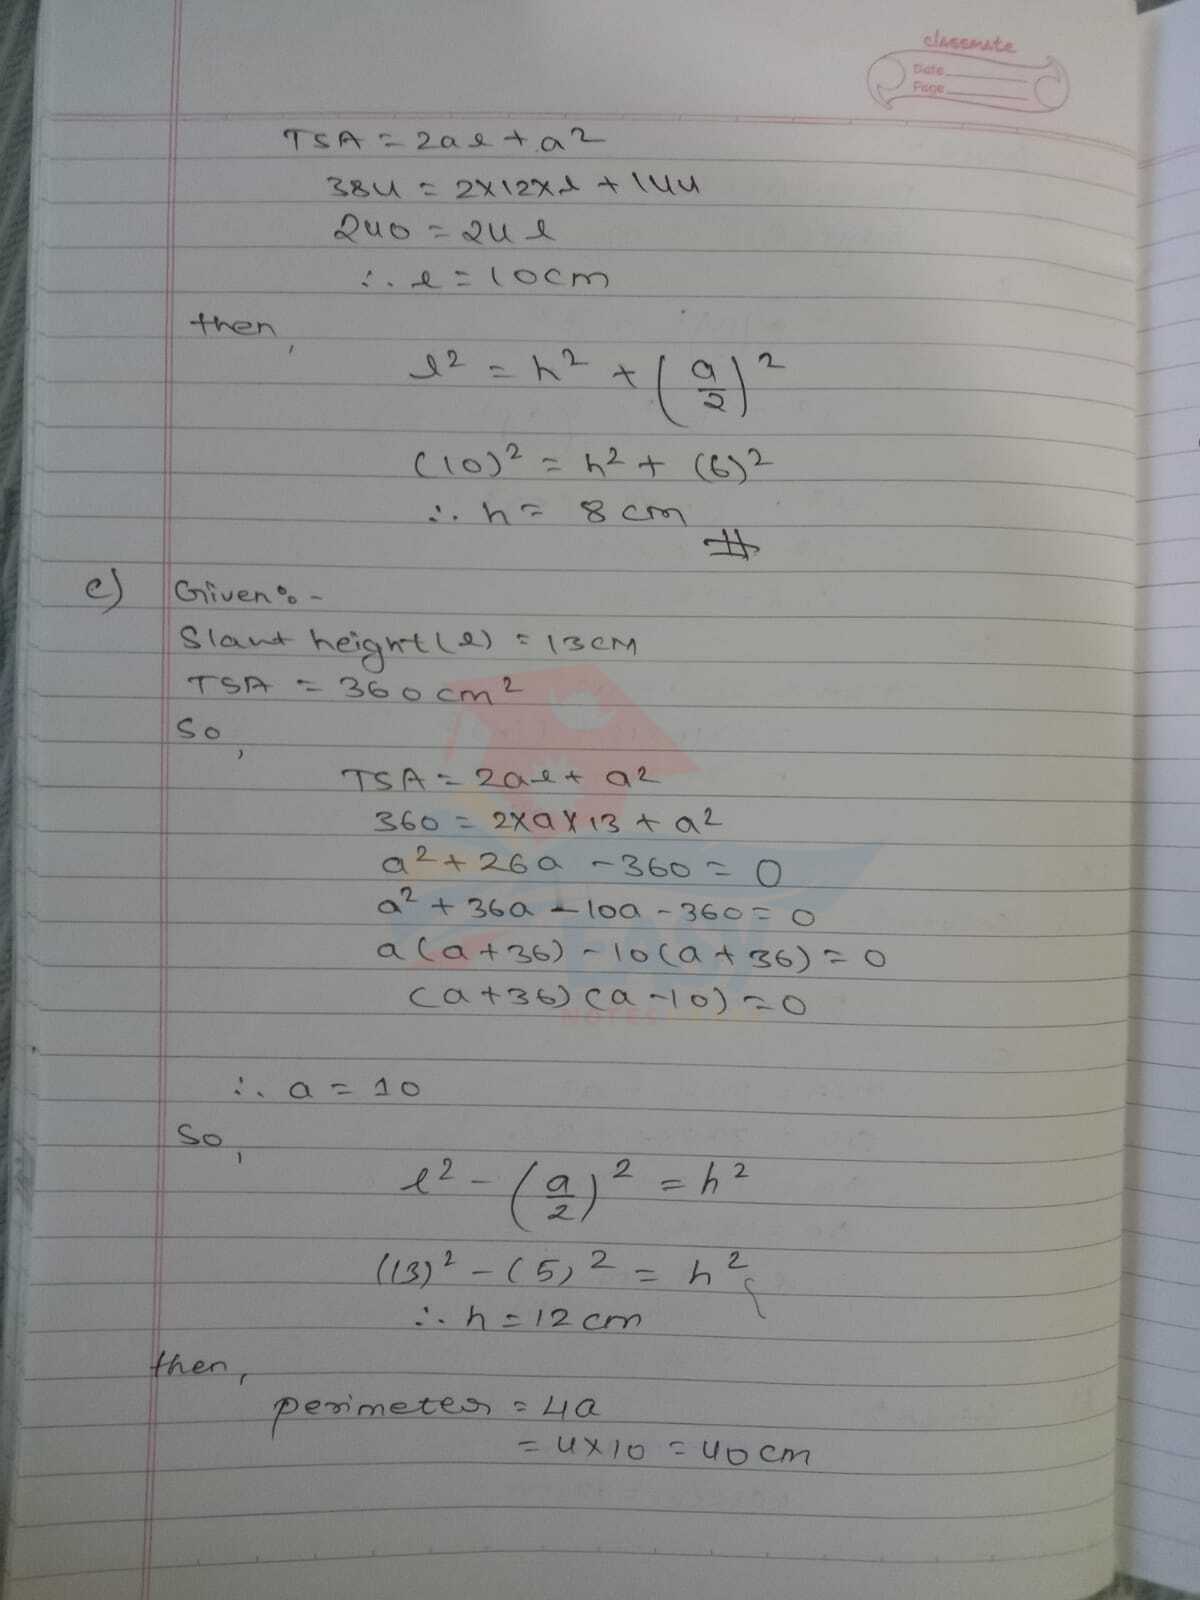 classmate
Date
Page
TSA = 2al + a²
384 = 2×12×l + 144
240 = 24 l
∴ l = 10cm
then,
l² = h² + (a/2)²
(10)² = h² + (6)²
∴ h = 8 cm
#
c) Given:-
Slant height (l) = 13cm
TSA = 360 cm²
So,
TSA = 2al + a²
360 = 2×a×13 + a²
a² + 26a - 360 = 0
a² + 36a - 10a - 360 = 0
a(a+36) - 10(a+36) = 0
(a+36) (a-10) = 0
EASY
NOTES
∴ a = 10
So,
l² - (a/2)² = h²
(13)² - (5)² = h²
∴ h = 12 cm
then,
perimeter = 4a
= 4×10 = 40 cm